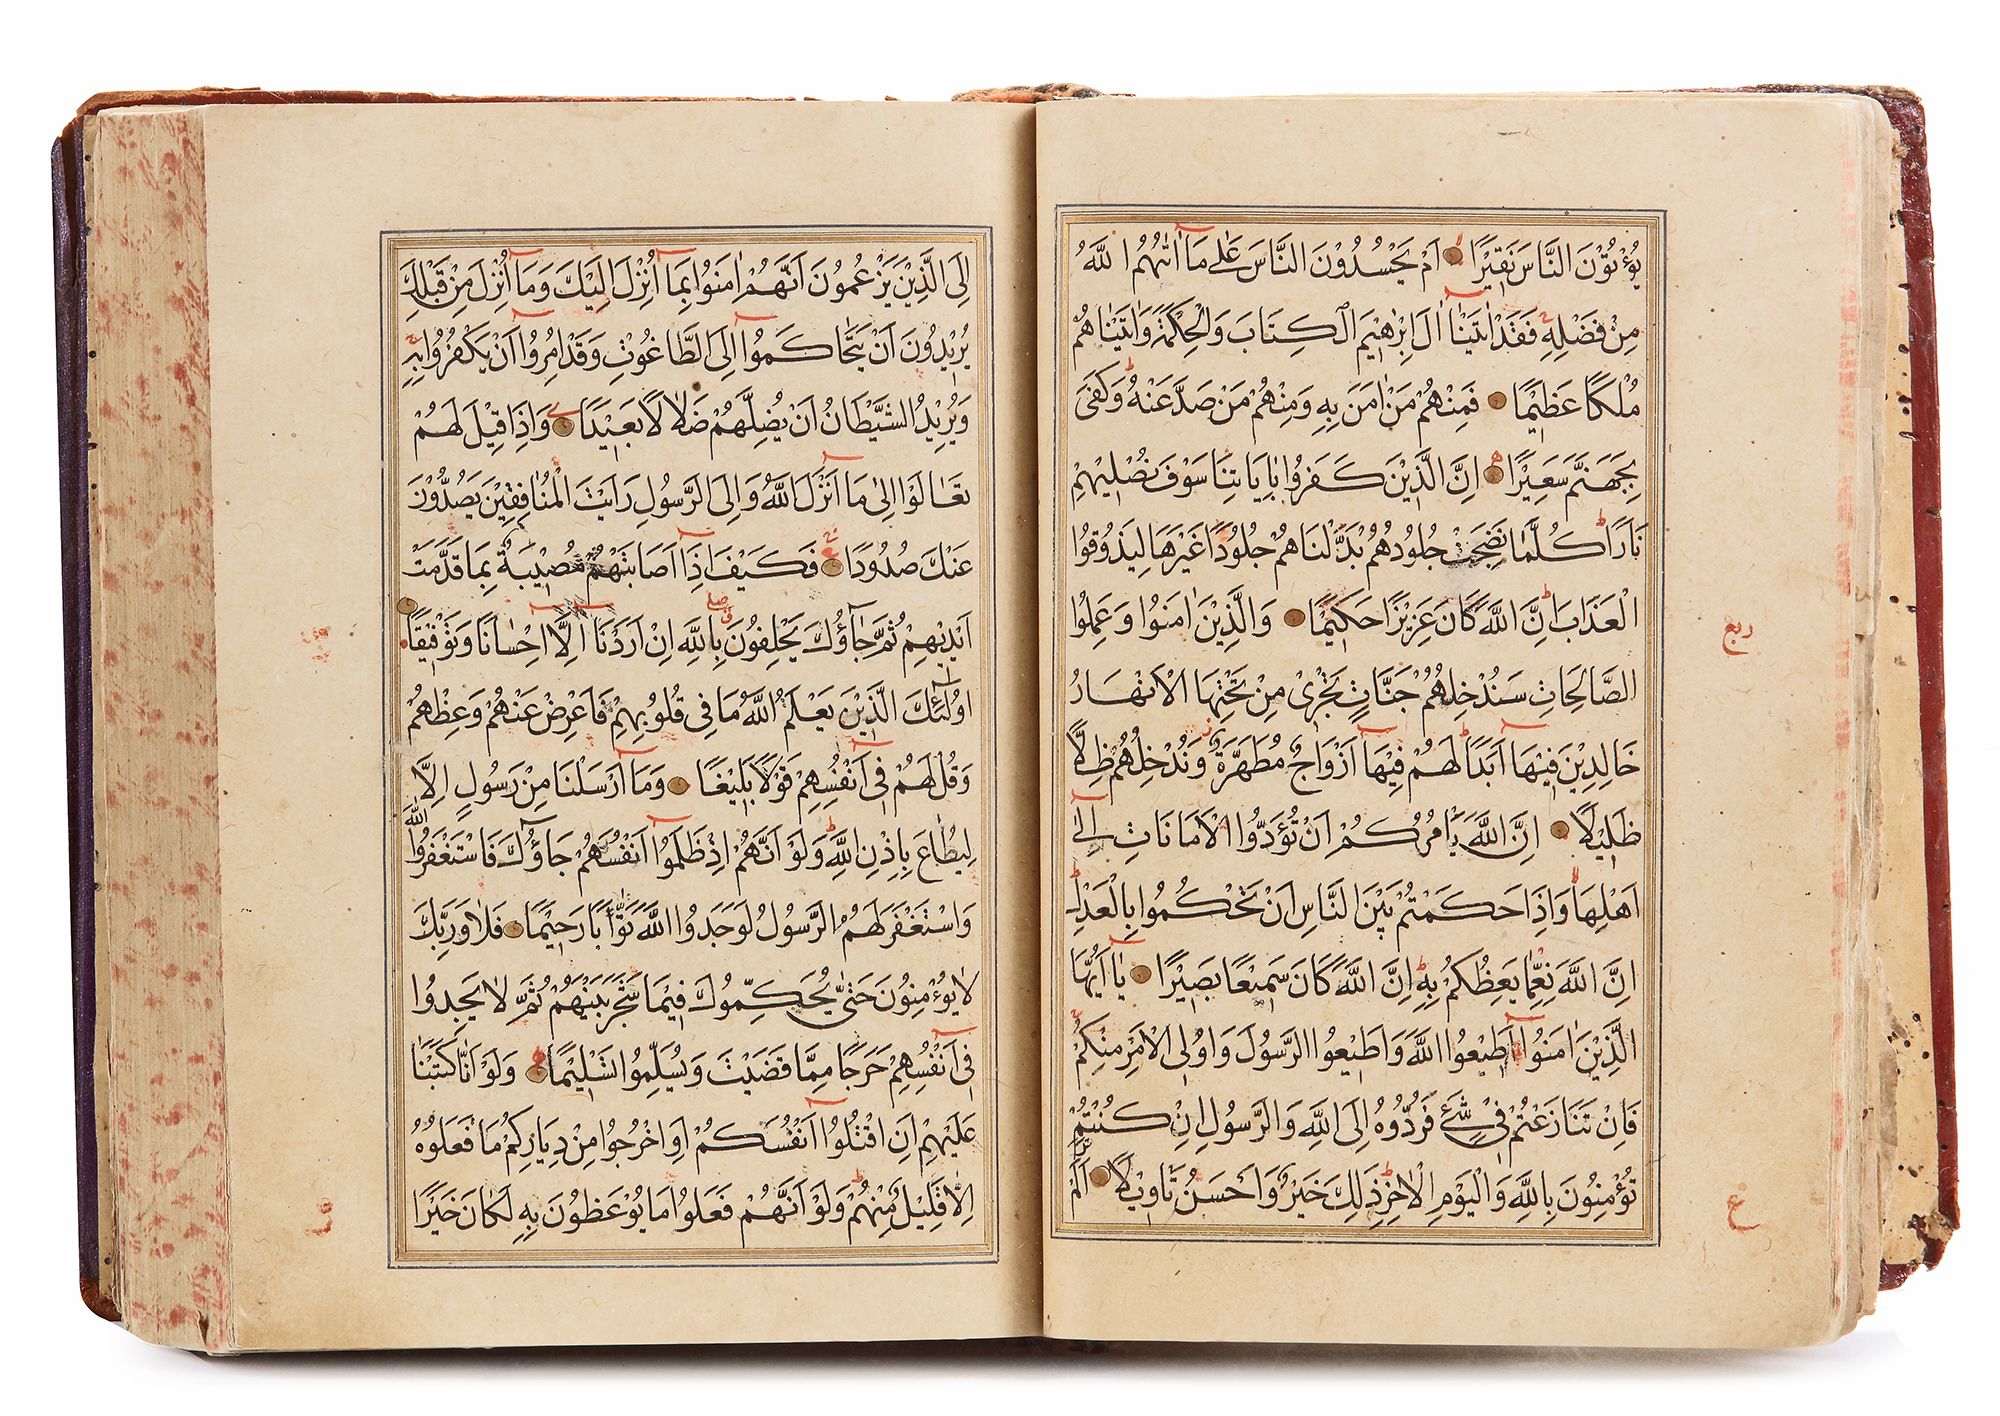 يُؤْتُوْنَ النَّاسَ نَقِيْرًا اَمْ يَحْسُدُوْنَ النَّاسَ عَلٰى مَا اٰتٰهُمُ اللّٰهُ
مِنْ فَضْلِهِ فَقَدْ اٰتَيْنَا اٰلَ اِبْرٰهِيْمَ الْكِتَابَ وَالْحِكْمَةَ وَاٰتَيْنَاهُمْ
مُلْكًا عَظِيْمًا فَمِنْهُمْ مَنْ اٰمَنَ بِهِ وَمِنْهُمْ مَنْ صَدَّ عَنْهُ وَكَفٰى
بِجَهَنَّمَ سَعِيْرًا اِنَّ الَّذِيْنَ كَفَرُوْا بِاٰيَاتِنَا سَوْفَ نُصْلِيْهِمْ
نَارًا كُلَّمَا نَضِجَتْ جُلُوْدُهُمْ بَدَّلْنَاهُمْ جُلُوْدًا غَيْرَهَا لِيَذُوْقُوا
الْعَذَابَ اِنَّ اللّٰهَ كَانَ عَزِيْزًا حَكِيْمًا وَالَّذِيْنَ اٰمَنُوْا وَعَمِلُوا
ربع
الصَّالِحَاتِ سَنُدْخِلُهُمْ جَنَّاتٍ تَجْرِيْ مِنْ تَحْتِهَا الْاَنْهَارُ
خَالِدِيْنَ فِيْهَا اَبَدًا لَهُمْ فِيْهَا اَزْوَاجٌ مُطَهَّرَةٌ وَنُدْخِلُهُمْ ظِلًّا
ظَلِيْلًا اِنَّ اللّٰهَ يَاْمُرُكُمْ اَنْ تُؤَدُّوا الْاَمَانَاتِ اِلٰى
اَهْلِهَا وَاِذَا حَكَمْتُمْ بَيْنَ النَّاسِ اَنْ تَحْكُمُوْا بِالْعَدْلِ
اِنَّ اللّٰهَ نِعِمَّا يَعِظُكُمْ بِهِ اِنَّ اللّٰهَ كَانَ سَمِيْعًا بَصِيْرًا يَا اَيُّهَا
الَّذِيْنَ اٰمَنُوْا اَطِيْعُوا اللّٰهَ وَاَطِيْعُوا الرَّسُوْلَ وَاُولِى الْاَمْرِ مِنْكُمْ
فَاِنْ تَنَازَعْتُمْ فِيْ شَيْءٍ فَرُدُّوْهُ اِلَى اللّٰهِ وَالرَّسُوْلِ اِنْ كُنْتُمْ
تُؤْمِنُوْنَ بِاللّٰهِ وَالْيَوْمِ الْاٰخِرِ ذٰلِكَ خَيْرٌ وَاَحْسَنُ تَاْوِيْلًا اَلَمْ تَرَ
ع
اِلَى الَّذِيْنَ يَزْعُمُوْنَ اَنَّهُمْ اٰمَنُوْا بِمَا اُنْزِلَ اِلَيْكَ وَمَا اُنْزِلَ مِنْ قَبْلِكَ
يُرِيْدُوْنَ اَنْ يَتَحَاكَمُوْا اِلَى الطَّاغُوْتِ وَقَدْ اُمِرُوْا اَنْ يَكْفُرُوْا بِهِ
وَيُرِيْدُ الشَّيْطَانُ اَنْ يُضِلَّهُمْ ضَلَالًا بَعِيْدًا وَاِذَا قِيْلَ لَهُمْ
تَعَالَوْا اِلٰى مَا اَنْزَلَ اللّٰهُ وَاِلَى الرَّسُوْلِ رَاَيْتَ الْمُنَافِقِيْنَ يَصُدُّوْنَ
عَنْكَ صُدُوْدًا فَكَيْفَ اِذَا اَصَابَتْهُمْ مُصِيْبَةٌ بِمَا قَدَّمَتْ
اَيْدِيْهِمْ ثُمَّ جَاؤُكَ يَحْلِفُوْنَ بِاللّٰهِ اِنْ اَرَدْنَا اِلَّا اِحْسَانًا وَتَوْفِيْقًا
اُولٰئِكَ الَّذِيْنَ يَعْلَمُ اللّٰهُ مَا فِيْ قُلُوْبِهِمْ فَاَعْرِضْ عَنْهُمْ وَعِظْهُمْ
وَقُلْ لَهُمْ فِيْ اَنْفُسِهِمْ قَوْلًا بَلِيْغًا وَمَا اَرْسَلْنَا مِنْ رَسُوْلٍ اِلَّا
لِيُطَاعَ بِاِذْنِ اللّٰهِ وَلَوْ اَنَّهُمْ اِذْ ظَلَمُوْا اَنْفُسَهُمْ جَاؤُكَ فَاسْتَغْفَرُوا اللّٰهَ
وَاسْتَغْفَرَ لَهُمُ الرَّسُوْلُ لَوَجَدُوا اللّٰهَ تَوَّابًا رَحِيْمًا فَلَا وَرَبِّكَ
لَا يُؤْمِنُوْنَ حَتّٰى يُحَكِّمُوْكَ فِيْمَا شَجَرَ بَيْنَهُمْ ثُمَّ لَا يَجِدُوْا
فِيْ اَنْفُسِهِمْ حَرَجًا مِمَّا قَضَيْتَ وَيُسَلِّمُوْا تَسْلِيْمًا وَلَوْ اَنَّا كَتَبْنَا
عَلَيْهِمْ اَنِ اقْتُلُوْا اَنْفُسَكُمْ اَوِ اخْرُجُوْا مِنْ دِيَارِكُمْ مَا فَعَلُوْهُ
اِلَّا قَلِيْلٌ مِنْهُمْ وَلَوْ اَنَّهُمْ فَعَلُوْا مَا يُوْعَظُوْنَ بِهِ لَكَانَ خَيْرًا